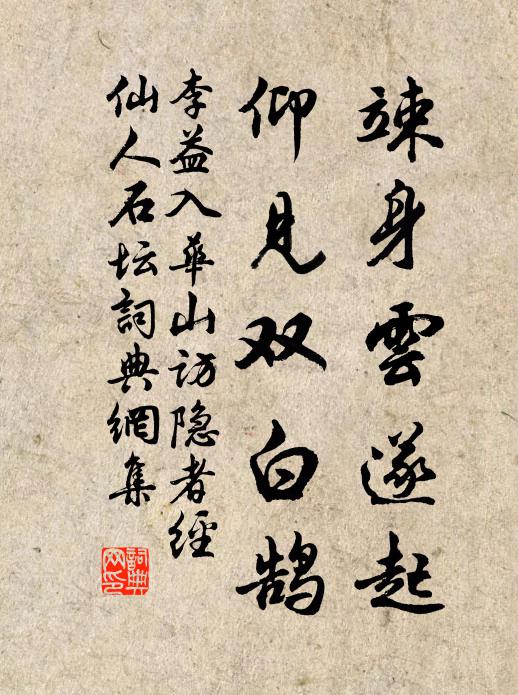 竦身雲遂起
仰见双白鹄
李益入華山访隐者經
仙人石坛詞典網集
詞典网印